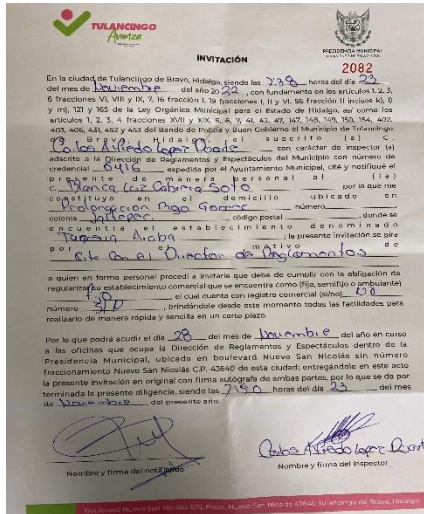 TULANCINGO
Avanza
PRESIDENCIA MUNICIPAL
INVITACIÓN
2082
En la ciudad de Tulancingo de Bravo, Hidalgo, siendo las 7:38 horas del día 23
del mes de Noviembre del año 2022, con fundamento en los artículos 1, 2, 3,
6 fracciones VI, VIII y IX, 7, 16 fracción I, 19 fracciones I, II y VI, 56 fracción II incisos k), l)
y m), 121 y 165 de la Ley Orgánica Municipal para el Estado de Hidalgo, así como los
artículos 1, 2, 3, 4 fracciones XVII y XIX, 5, 6, 7, 41, 42, 47, 147, 148, 149, 150, 184, 402,
403, 406, 431, 452 y 453 del Bando de Policía y Buen Gobierno el Municipio de Tulancingo
de Bravo Hidalgo el suscrito (a) C.
Carlos Alfredo Lopez con carácter de inspector (a)
adscrito a la Dirección de Reglamentos y Espectáculos del Municipio con número de
credencial 0416 expedida por el Ayuntamiento Municipal, cité y notifiqué el
presente de manera personal al (la)
C. Blanca Luz Cabrera Soto por lo que me
constituyo en el domicilio ubicado en
Prolongacion Gomez número
colonia Jaltepec, código postal , donde se
encuentra el establecimiento denominado
; la presente invitación se gira
por el motivo de
Cita con el Director de Reglamentos
a quien en forma personal procedí a invitarle que debe de cumplir con la obligación de
regularizar su establecimiento comercial que se encuentra como (fijo, semifijo o ambulante)
Fijo, el cual cuenta con registro comercial (si/no) no
número S/N, brindándole desde este momento todas las facilidades para
realizarlo de manera rápida y sencilla en un corto plazo.
Por lo que podrá acudir el día 28 del mes de Noviembre del año en curso
a las oficinas que ocupa la Dirección de Reglamentos y Espectáculos dentro de la
Presidencia Municipal, ubicada en boulevard Nuevo San Nicolás sin número
fraccionamiento Nuevo San Nicolás C.P. 43640 de esta ciudad; entregándole en este acto
la presente invitación en original con firma autógrafa de ambas partes, por lo que se da por
terminada la presente diligencia, siendo las horas del día 23 del mes
de Noviembre del presente año.
Carlos Alfredo Lopez
Nombre y firma del notificado
Nombre y firma del Inspector
Boulevard Nuevo San Nicolás S/N, Fracc. Nuevo San Nicolás 43640 Tulancingo de Bravo, Hidalgo